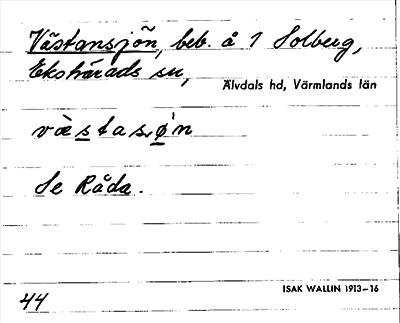 Västansjön, beb. å 1 Solberg,
Ekshärads sn,
Älvdals hd, Värmlands län
væ̀stasøn
Se Råda.
ISAK WALLIN 1913-16
44